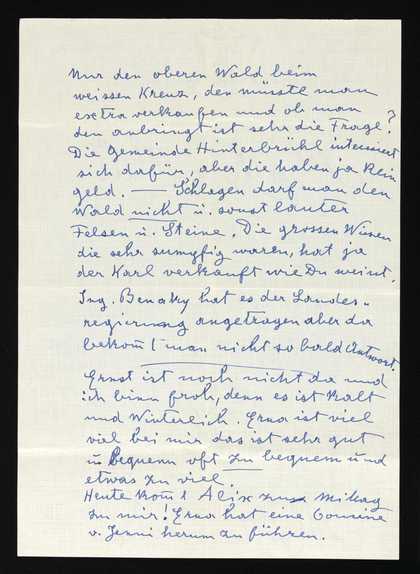 Nur den oberen Wald beim
weissen Kreuz, den müsste man
extra verkaufen und ob man
den anbringt ist sehr die Frage?
Die Gemeinde Hinterbrühl interessiert
sich dafür, aber die haben ja kein
geld. — Schlagen darf man den
Wald nicht u. sonst lauter
Felsen u. Steine. Die grossen Wiesen
die sehr sumpfig waren, hat ja
der Karl verkauft wie Du weisst.
Ing. Benaky hat es der Landes-
regierung angetragen aber da
bekom̄t man nicht so bald Antwort.
Ernst ist noch nicht da und
ich binn froh, denn es ist kalt
und Winterlich. Erna ist viel
viel bei mir das ist sehr gut
u bequem oft zu bequem und
etwas zu viel.
Heute kom̄t Alix zum Mittag
zu mir! Erna hat eine Cousine
v. Jenni herum zu führen.